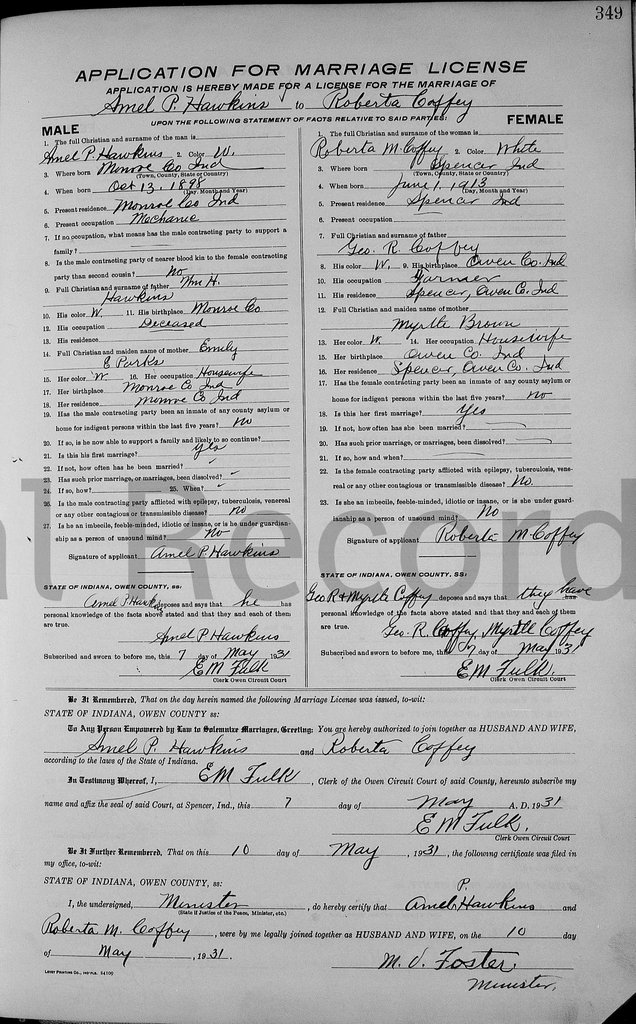 349
APPLICATION FOR MARRIAGE LICENSE
APPLICATION IS HEREBY MADE FOR A LICENSE FOR THE MARRIAGE OF
Amel P. Hawkins to Roberta Coffey
UPON THE FOLLOWING STATEMENT OF FACTS RELATIVE TO SAID PARTIES:
MALE
1. The full Christian and surname of the man is
Amel P. Hawkins 2. Color W.
3. Where born Monroe Co Ind
(Town, County, State or Country)
4. When born Oct 13, 1898
(Day, Month and Year)
5. Present residence Monroe Co Ind
6. Present occupation Mechanic
7. If no occupation, what means has the male contracting party to support a
family?
8. Is the male contracting party of nearer blood kin to the female contracting
party than second cousin? No
9. Full Christian and surname of father Wm H.
Hawkins
10. His color W. 11. His birthplace Monroe Co
12. His occupation Deceased
13. His residence
14. Full Christian and maiden name of mother Emily
E Parks
15. Her color W. 16. Her occupation Housewife
17. Her birthplace Monroe Co Ind
18. Her residence Monroe Co Ind
19. Has the male contracting party been an inmate of any county asylum or
home for indigent persons within the last five years? No
20. If so, is he now able to support a family and likely to so continue?
21. Is this his first marriage? Yes
22. If not, how often has he been married?
23. Has such prior marriage, or marriages, been dissolved?
24. If so, how? 25. When?
26. Is the male contracting party afflicted with epilepsy, tuberculosis, venereal
or any other contagious or transmissible disease? No
27. Is he an imbecile, feeble-minded, idiotic or insane, or is he under guardian-
ship as a person of unsound mind? No
Signature of applicant Amel P Hawkins
STATE OF INDIANA, OWEN COUNTY, ss:
Amel P Hawk deposes and says that he has
personal knowledge of the facts above stated and that they and each of them
are true.
Amel P Hawkins
Subscribed and sworn to before me, this 7 day of May 1931
E M Fulk
Clerk Owen Circuit Court
FEMALE
1. The full Christian and surname of the woman is
Roberta M. Coffey 2. Color White
3. Where born Spencer Ind
(Town, County, State or Country)
4. When born June 1, 1913
(Day, Month and Year)
5. Present residence Spencer Ind
6. Present occupation
7. Full Christian and surname of father
Geo. R. Coffey
8. His color W. 9. His birthplace Owen Co. Ind
10. His occupation Farmer
11. His residence Spencer, Owen Co. Ind
12. Full Christian and maiden name of mother
Myrtle Brown
13. Her color W. 14. Her occupation Housewife
15. Her birthplace Owen Co Ind
16. Her residence Spencer, Owen Co. Ind
17. Has the female contracting party been an inmate of any county asylum or
home for indigent persons within the last five years? No
18. Is this her first marriage? Yes
19. If not, how often has she been married?
20. Has such prior marriage, or marriages, been dissolved?
21. If so, how and when?
22. Is the female contracting party afflicted with epilepsy, tuberculosis, vene-
real or any other contagious or transmissible disease? No
23. Is she an imbecile, feeble-minded, idiotic or insane, or is she under guard-
ianship as a person of unsound mind? No
Signature of applicant Roberta M Coffey
STATE OF INDIANA, OWEN COUNTY, SS:
Geo R & Myrtle Coffey deposes and says that they have
personal knowledge of the facts above stated and that they and each of them
are true.
Geo. R. Coffey, Myrtle Coffey
Subscribed and sworn to before me, this 7 day of May, 1931
E M Fulk
Clerk Owen Circuit Court
Be It Remembered, That on the day herein named the following Marriage License was issued, to-wit:
STATE OF INDIANA, OWEN COUNTY ss:
To Any Person Empowered by Law to Solemnize Marriages, Greeting: You are hereby authorized to join together as HUSBAND AND WIFE,
Amel P. Hawkins and Roberta Coffey
according to the laws of the State of Indiana.
In Testimony Whereof, I, E M Fulk, Clerk of the Owen Circuit Court of said County, hereunto subscribe my
name and affix the seal of said Court, at Spencer, Ind., this 7 day of May A. D. 1931
E M Fulk.
Clerk Owen Circuit Court
Be It Further Remembered, That on this 10 day of May, 1931, the following certificate was filed in
my office, to-wit:
STATE OF INDIANA, OWEN COUNTY, ss:
I, the undersigned, Minister, do hereby certify that Amel P. Hawkins and
(State if Justice of the Peace, Minister, etc.)
Roberta M. Coffey, were by me legally joined together as HUSBAND AND WIFE, on the 10 day
of May, 1931.
M. V. Foster.
Minister.
al Record